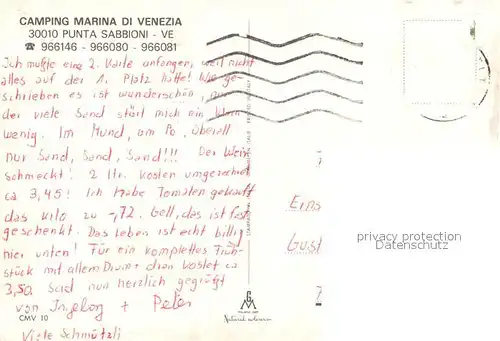 CAMPING MARINA DI VENEZIA
30010 PUNTA SABBIONI - VE
☎ 966146 - 966080 - 966081
Ich mußte eine 2. Karte anfangen, weil nicht
alles auf der 1. Platz hatte! Wie ge-
schrieben es ist wunderschön, nur
der viele Sand stört mich ein klein
wenig. Im Mund, am Po, überall
nur Sand, Sand, Sand!!! Der Wein
schmeckt! 2 ltr. kosten umgerechnet
ca 3,45! Ich habe Tomaten gekauft
das Kilo zu -,72. Gell, das ist fast
geschenkt. Das Leben ist echt billig
hier unten! Für ein komplettes Früh-
stück mit allem Drum + dran kostet ca
3,50. Seid nun herzlich gegrüßt
von Ingeborg + Peter
CMV 10
Viele Schmützli
Eins
Gust
privacy protection
Datenschutz
GM
Natural colorcon